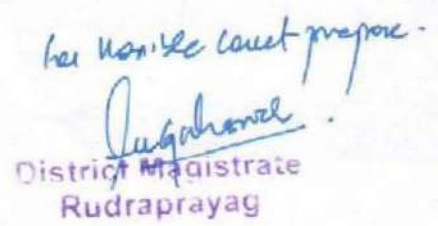 for Hon'ble Court purpose.
District Magistrate
Rudraprayag